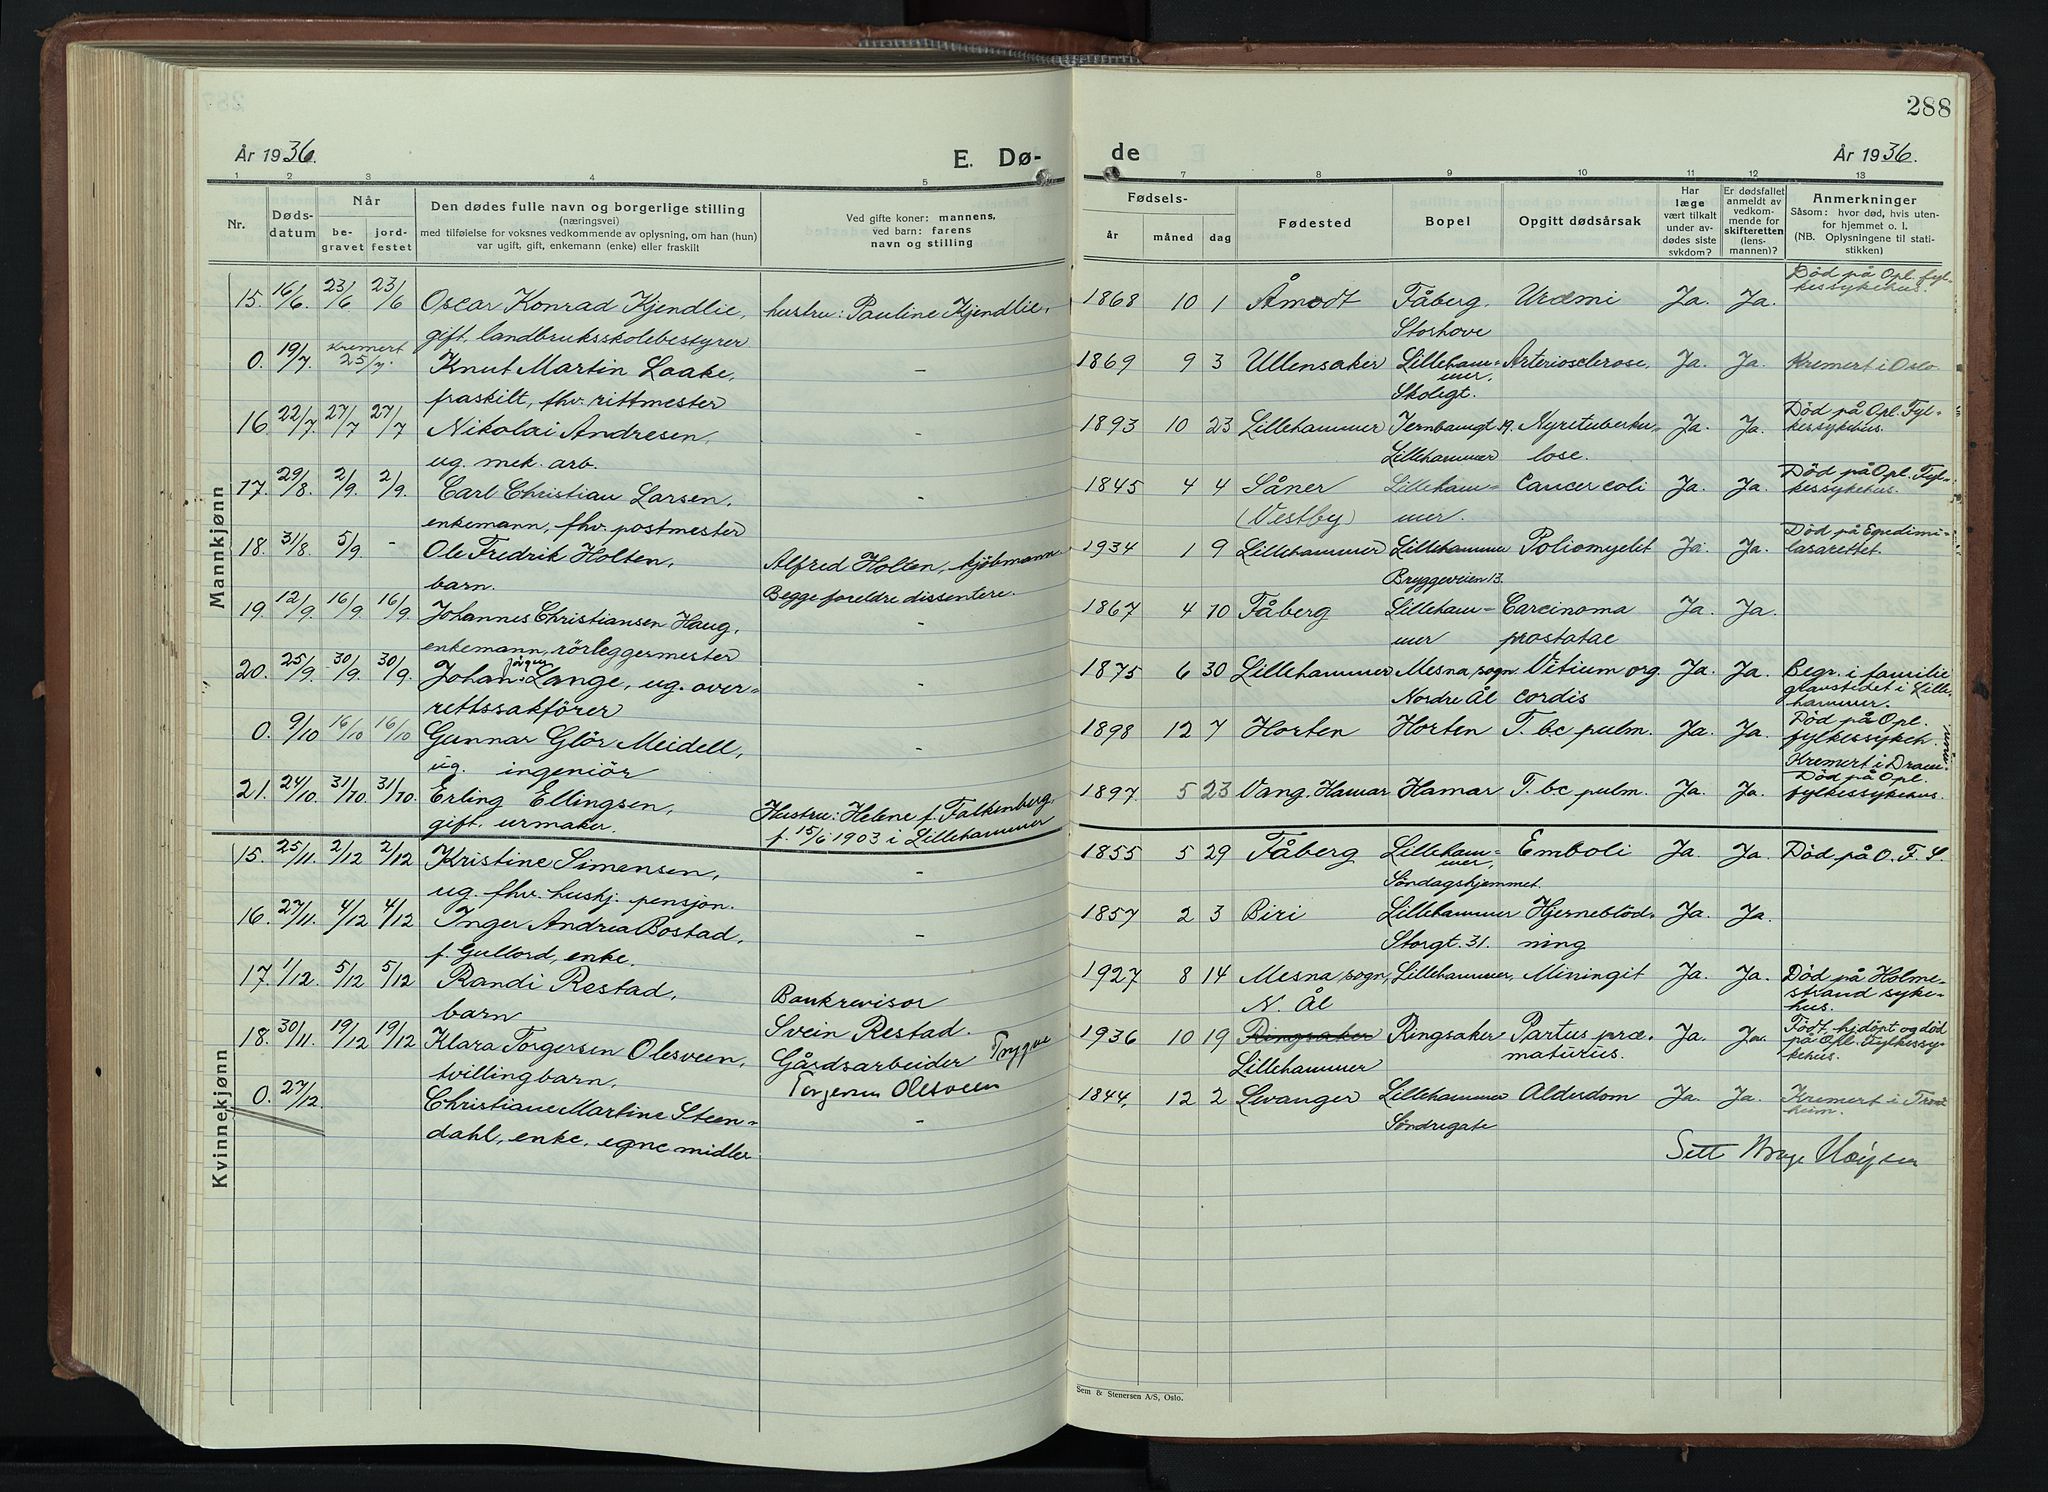 288
År 1936.
E. Dø-
de
År 1936.
1 2 3 4 5 7 8 9 10 11 12 13
Nr.
Døds-
datum
Når
be-
gravet
jord-
festet
Den dødes fulle navn og borgerlige stilling
(næringsvei)
med tilføielse for voksnes vedkommende av oplysning, om han (hun)
var ugift, gift, enkemann (enke) eller fraskilt
Ved gifte koner: mannens,
ved barn: farens
navn og stilling
Fødsels-
år måned dag
Fødested
Bopel
Opgitt dødsårsak
Har
læge
vært tilkalt
under av-
dødes siste
sykdom?
Er dødsfallet
anmeldt av
vedkom-
mende for
skifteretten
(lens-
mannen)?
Anmerkninger
Såsom: hvor død, hvis uten-
for hjemmet o. l.
(NB. Oplysningene til stati-
stikken)
Mannkjønn
15. 16/6. 23/6 23/6 Oscar Konrad Kjendlie, hustru: Pauline Kjendlie. 1868 10 1 Åmodt Fåberg, Uræmi Ja. Ja. Død på Opl. fyl-
kessykehus.
gift, landbruksskolebestyrer Storhove
0. 19/7. Kremert 25/7. Knut Martin Laake, - 1869 9 3 Ullensaker Lilleham- Arteriosclerose. Ja. Ja. Kremert i Oslo
mer.
fraskilt, fhv. rittmester Skoligt.
16. 22/7. 27/7 27/7 Nikolai Andresen, - 1893 10 23 Lillehammer Jernbanegt 19. Nyretuberku- Ja. Ja. Død på Opl. Fyl-
kessykehus.
ug. mek. arb. Lillehammer lose.
17. 29/8. 2/9. 2/9. Carl Christian Larsen, - 1845 4 4 Såner Lilleham- Cancer coli Ja. Ja. Død på Opl. Fyl-
kessykehus.
enkemann, fhv. postmester (Vestby) mer.
18. 31/8. 5/9. - Ole Fredrik Holten, Alfred Holten, kjøbmann. 1934 1 9 Lillehammer Lillehammer Poliomyelit Ja. Ja. Død på Epedimi-
lasarettet.
barn. Begge foreldre dissentere. Bryggeveien 13.
19. 12/9. 16/9. 16/9. Johannes Christiansen Haug, - 1867 4 10 Fåberg Lilleham- Carcinoma Ja. Ja.
enkemann, rörleggermester mer prostatae
20. 25/9. 30/9. 30/9. Johan Jörgen Lange, ug. over- - 1875 6 30 Lillehammer Mesna, sogn Vitium org. Ja. Ja. Begr. i familie
gravstedet i Lille-
hammer.
rettssakförer Nordre Ål cordis
0. 9/10 16/10 16/10 Gunnar Glör Meidell, - 1898 12 7 Horten Horten T. bc pulm. Ja. Ja. Død på Opl.
fylkessykeh.
Kremert i Dram-
men.
ug. ingeniör
21. 24/10. 31/10. 31/10. Erling Ellingsen, Hustru: Helene f. Falkenberg, 1897. 5 23 Vang. Hamar Hamar T. bc pulm. Ja. Ja. Död på Opl.
fylkessykehus.
gift, urmaker. f. 15/6 1903 i Lillehammer
Kvinnekjønn
15. 25/11. 2/12 2/12 Kristine Simensen, - 1855 5 29 Fåberg Lilleham- Emboli Ja. Ja. Död på O. F. S.
mer,
ug. fhv. hushj. pensjon. Söndagshjemmet.
16. 27/11. 4/12 4/12 Inger Andrea Bostad, - 1857 2 3 Biri Lillehammer Hjerneblöd- Ja. Ja.
f. Gullord, enke. Storgt. 31. ning
17. 1/12. 5/12 5/12 Randi Restad, Bankrevisor 1927 8 14 Mesna, sogn, Lillehammer, Miningit Ja. Ja. Död på Holme-
strand syke-
hus.
barn Svein Restad. N. Ål
18. 30/11. 19/12 19/12 Klara Torgersen Olesveen, Gårdsarbeider Trygve 1936 10 19 Ringsaker Ringsaker Partus præ- Ja. Ja. Født, hj.döpt og död
på Opl. Fylkessy-
kehus.
tvillingbarn. Torgersen Olesveen Lillehammer maturus.
0. 27/12. Christiane Martine Steen- - 1844. 12 2 Levanger Lillehammer Alderdom Ja. Ja. Kremert i Trond-
heim.
dahl, enke, egne midler Söndregate
Sett
Sem & Stenersen A/S, Oslo.